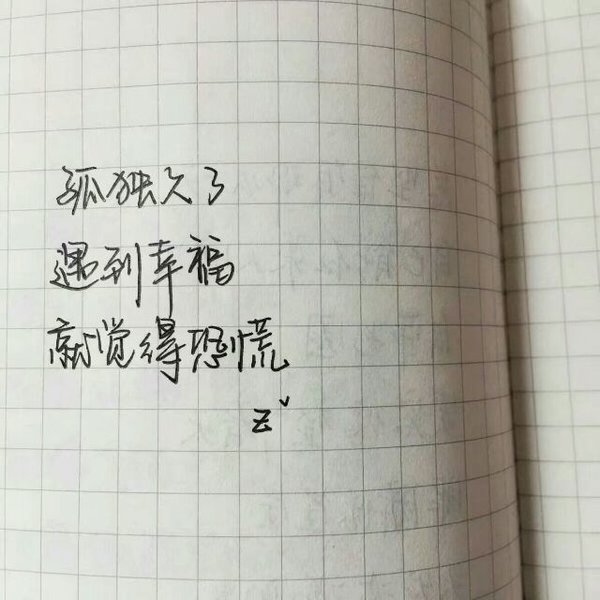 孤独久了
遇到幸福
就觉得恐慌